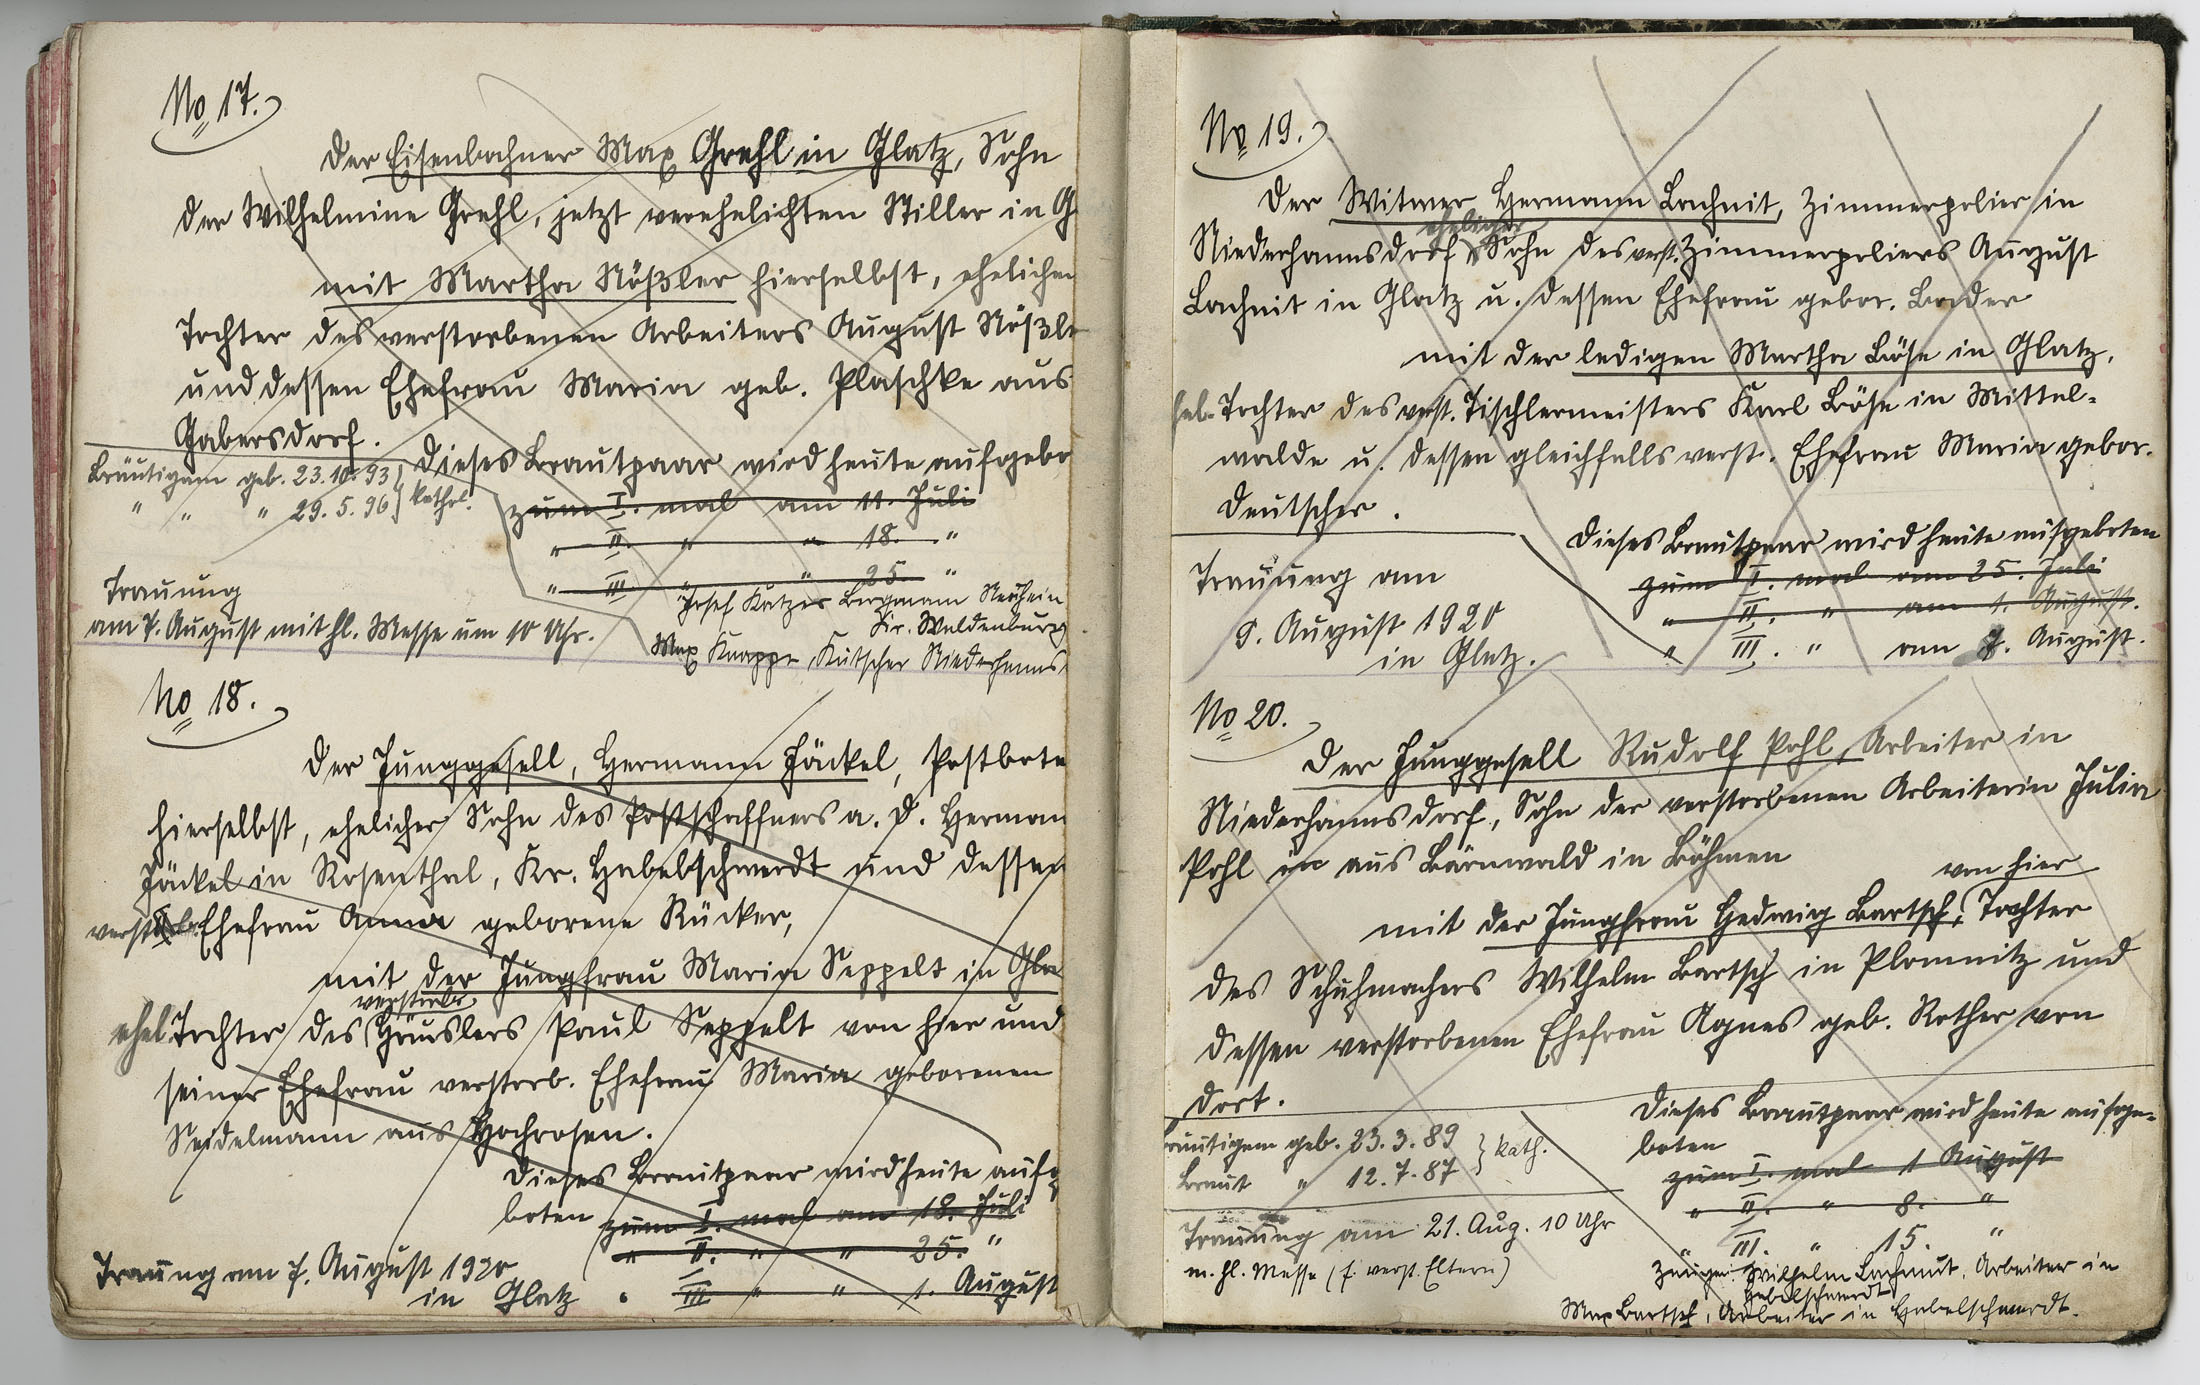 No 17.
Der Eisenbahner Max Grehl in Glatz, Sohn
der Wilhelmine Grehl, jetzt verehelichten Stiller in G
mit Martha Nößler hierselbst, ehelichen
Tochter des verstorbenen Arbeiters August Nößle
und dessen Ehefrau Maria geb. Plaschke aus
Gabersdorf.
Dieses Brautpaar wird heute aufgebo
Bräutigam geb. 23.10.93 } kathol.
" " " 29.5.96
zum I. mal am 11. Juli
" II. " " 18. "
" III. " " 25. "
Trauung
am 7. August mit hl. Messe um 10 Uhr.
Josef Katzer Bergmann Neuhein
Kr. Waldenburg
Max Knappe, Kutscher Niederhanns
No 18.
Der Junggesell, Hermann Jäckel, Postbote
hierselbst, ehelicher Sohn des Postschaffners a. D. Herman
Jäckel in Rosenthal, Kr. Habelschwerdt und dessen
verstorb. Ehefrau Anna geborene Rücker,
mit der Jungfrau Maria Seppelt in Gla
verstorb.
ehel. Tochter des Häuslers Paul Seppelt von hier und
seiner Ehefrau verstorb. Ehefrau Maria geborenen
Seidelmann aus Hochrosen.
Dieses Brautpaar wird heute aufg
boten zum I. mal am 18. Juli
" II. " " 25. "
" III. " " 1. August
Trauung am 7. August 1920
in Glatz
No 19.
Der Witwer Hermann Lachnit, Zimmerpolier in
ehelicher
Niederhannsdorf, Sohn des verst. Zimmerpoliers August
Lachnit in Glatz u. dessen Ehefrau gebor. Bader
mit der ledigen Martha Böse in Glatz,
ehel. Tochter des verst. Tischlermeisters Karl Böse in Mittel-
walde u. dessen gleichfalls verst. Ehefrau Maria gebor.
Deutscher.
Dieses Brautpaar wird heute aufgeboten
zum I. mal am 25. Juli
" II. " am 1. August.
" III. " am 8. August.
Trauung am
9. August 1920
in Glatz.
No 20.
Der Junggesell Rudolf Pohl, Arbeiter in
Niederhannsdorf, Sohn der verstorbenen Arbeiterin Julia
Pohl in aus Bärnwald in Böhmen
von hier
mit der Jungfrau Hedwig Bartsch, Tochter
des Schuhmachers Wilhelm Bartsch in Plomnitz und
dessen verstorbenen Ehefrau Agnes geb. Rother von
dort.
Dieses Brautpaar wird heute aufge-
boten
zum I. mal 1 August
" II. " 8. "
" III. " 15. "
Bräutigam geb. 23.3.89 } kath.
Braut " 12.7.87
Trauung am 21. Aug. 10 Uhr
m. hl. Messe (f. verst. Eltern)
Zeugen: Wilhelm Lachnut, Arbeiter in
Habelschwerdt
Max Bartsch, Arbeiter in Habelschwerdt.